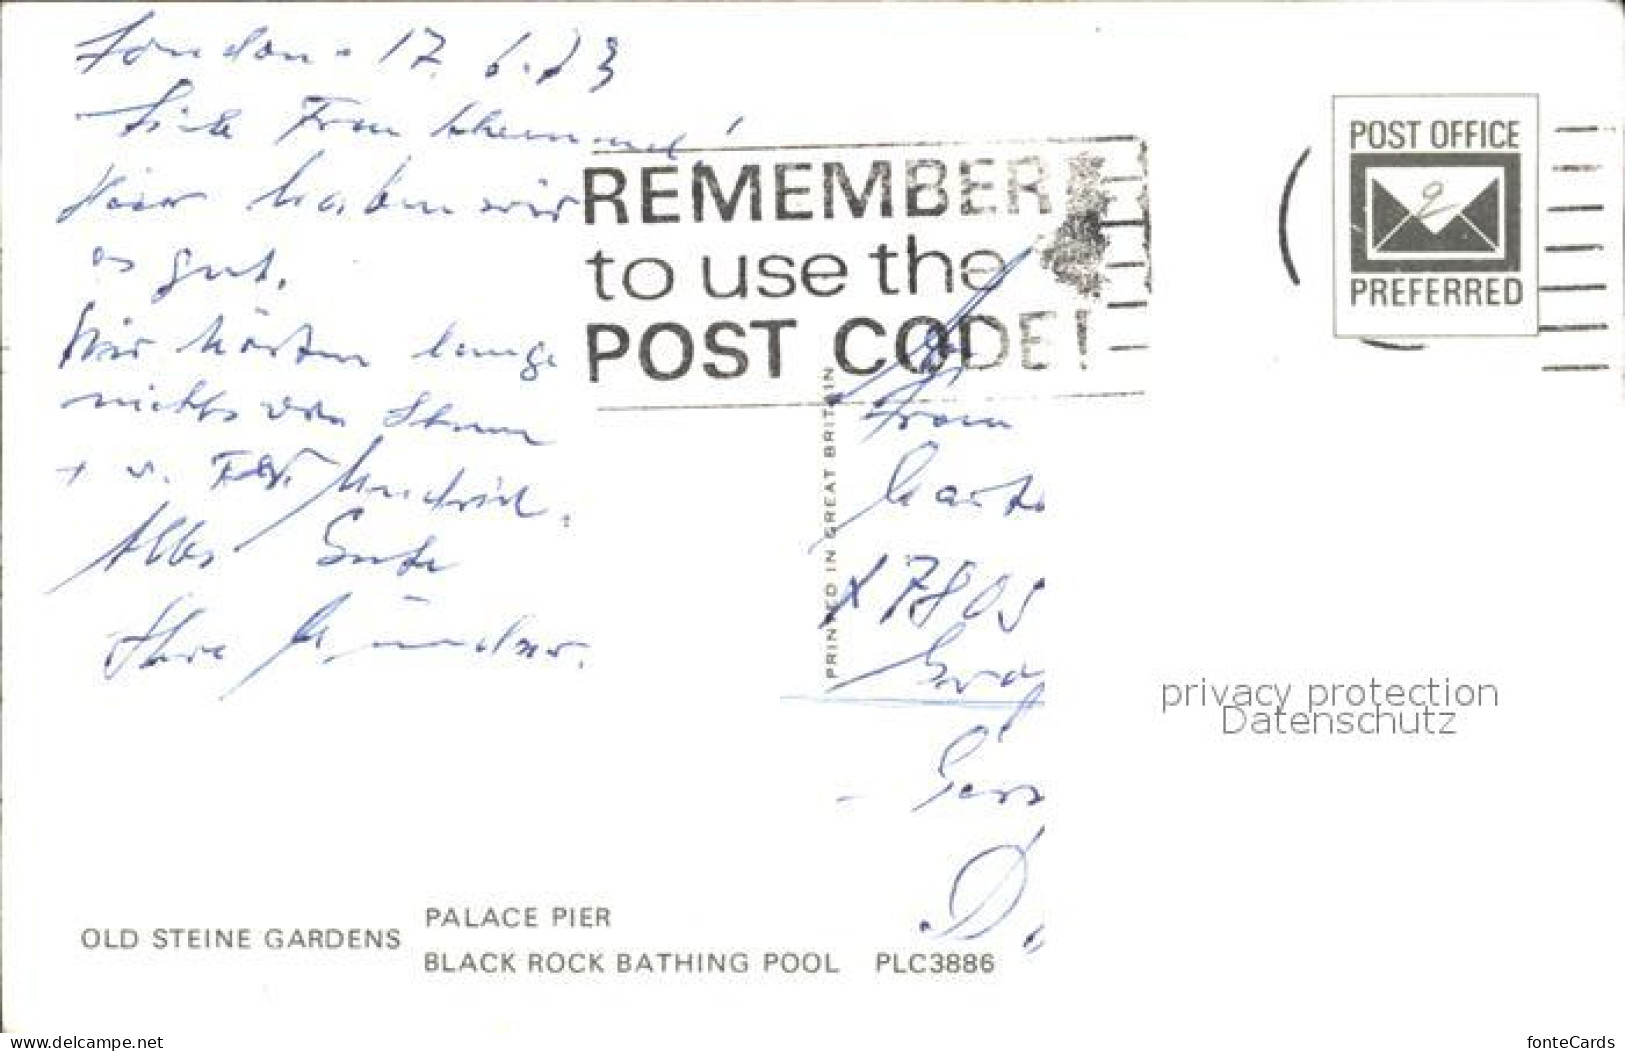 London - 17. 6. 73
Liebe Frau
Hier haben wir
es gut.
Wir hörten lange
nichts von Ihnen
+ v. Frl.
Alles Gute
Ihre
REMEMBER
to use the
POST CODE!
POST OFFICE
PREFERRED
PRINTED IN GREAT BRITAIN
Frau
X 7809
privacy protection
Datenschutz
OLD STEINE GARDENS
PALACE PIER
BLACK ROCK BATHING POOL PLC3886
www.delcampe.net
fonteCards